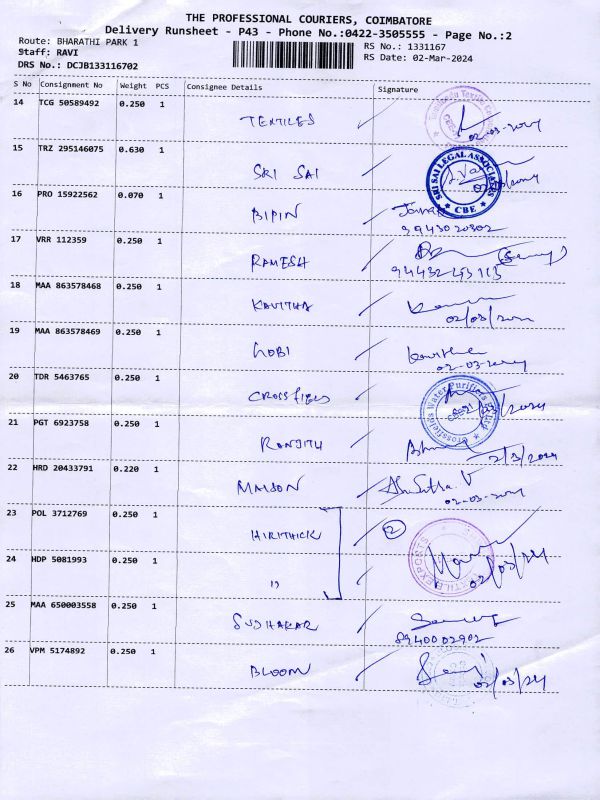 THE PROFESSIONAL COURIERS, COIMBATORE
Delivery Runsheet - P43 - Phone No.:0422-3505555 - Page No.:2
Route: BHARATHI PARK 1
Staff: RAVI
DRS No.: DCJB133116702
RS No.: 1331167
RS Date: 02-Mar-2024
S No Consignment No Weight PCS Consignee Details Signature
14 TCG 50589492 0.250 1 TEXTILES
15 TRZ 295146075 0.630 1 SRI SAI SRI SAI LEGAL ASSOCIATES CBE
16 PRO 15922562 0.070 1 BIPIN
17 VRR 112359 0.250 1 RAMESH
18 MAA 863578468 0.250 1 KAVITHA
19 MAA 863578469 0.250 1 GOBI Kavitha 02-03-2024
20 TDR 5463765 0.250 1 CROSSFIELD
21 PGT 6923758 0.250 1 RANJITH 2/3/2024
22 HRD 20433791 0.220 1 MAISON
23 POL 3712769 0.250 1 HIRITHICK 2
24 HDP 5081993 0.250 1 " 02/03/24
25 MAA 650003558 0.250 1 SUDHAKAR 8940002902
26 VPM 5174892 0.250 1 BLOOM 02/03/24